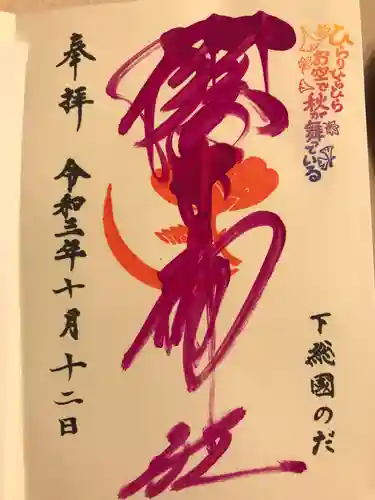 ひらりひらひら
お空で秋が
舞っている
下総國のだ
櫻木神社
奉拝 令和三年十月十二日